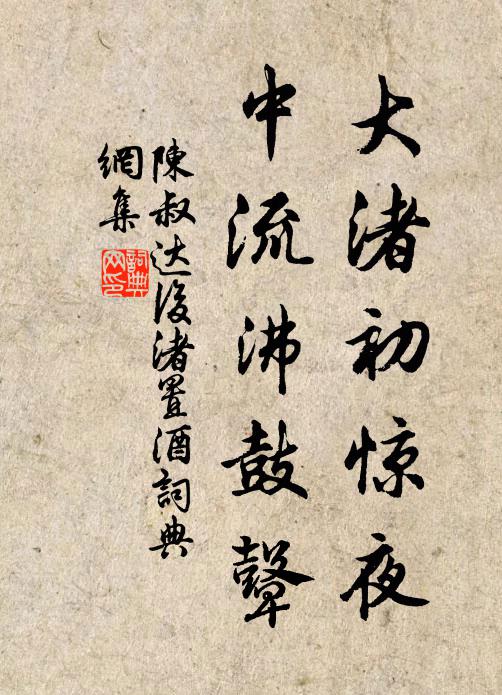 大渚初惊夜
中流沸鼓鼙
陳叔达後渚置酒詞典
網集
詞典
网印